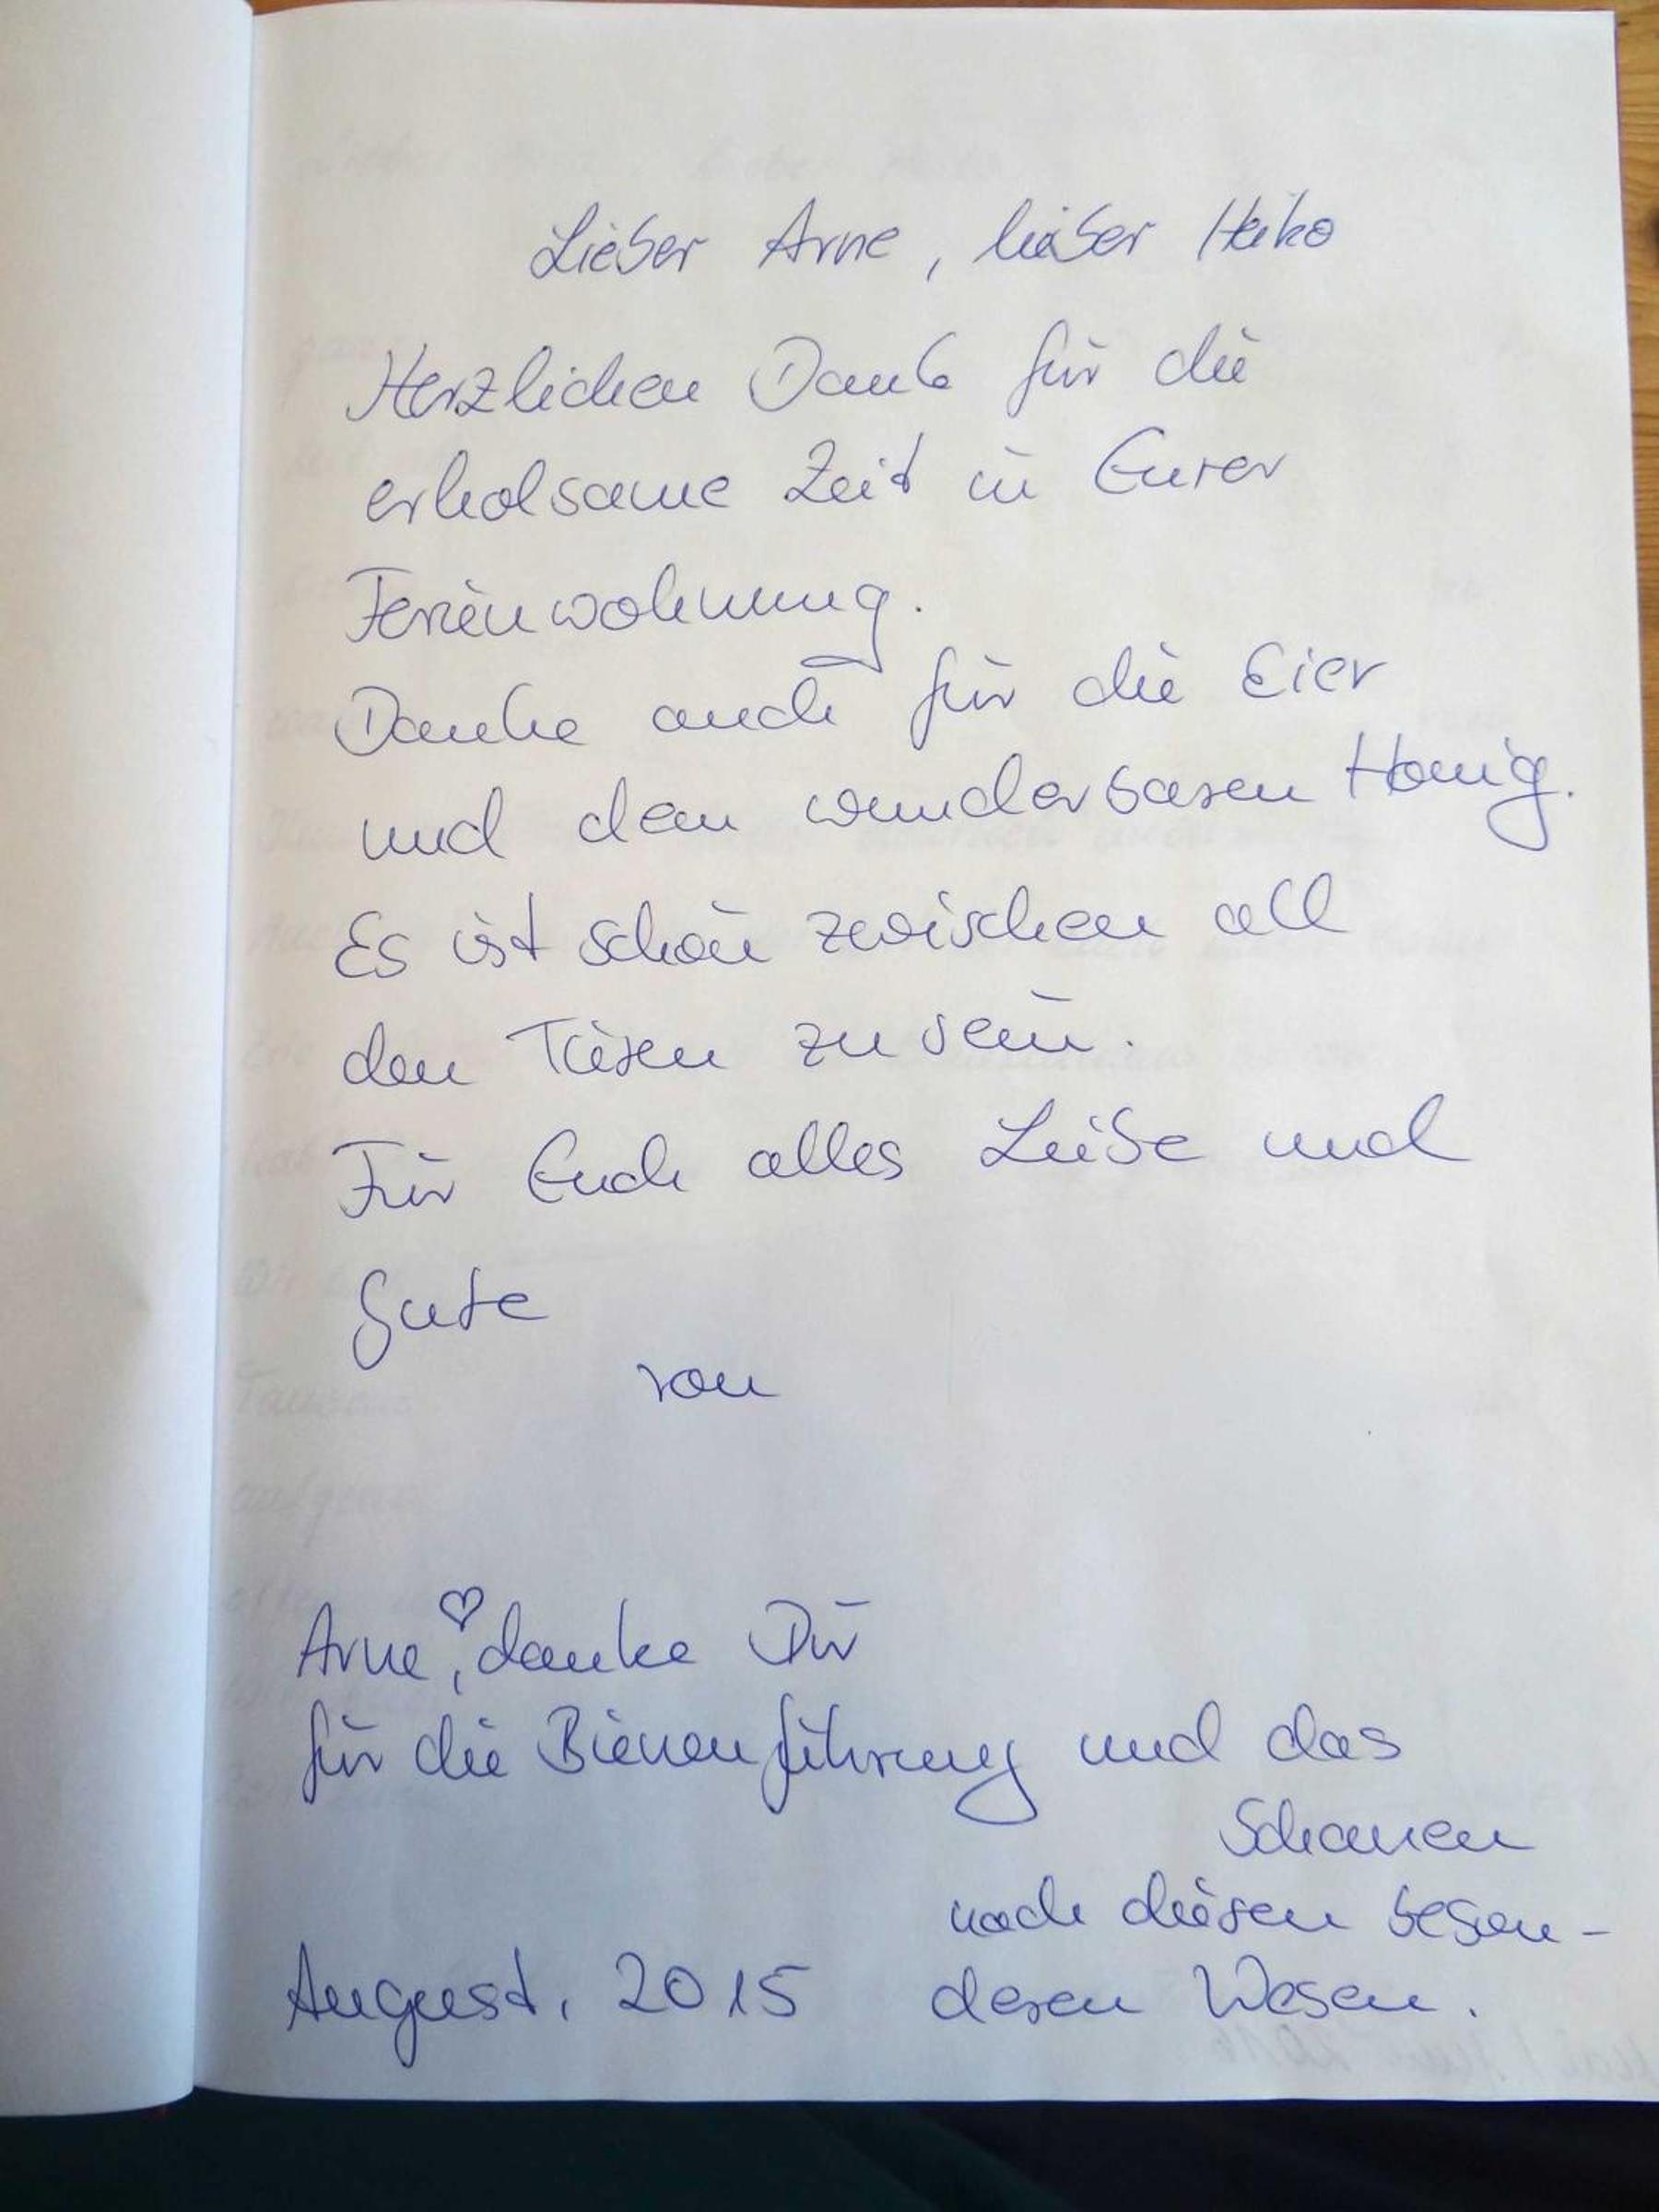 Lieber Arne, lieber Heiko
Herzlichen Dank für die
erholsame Zeit in Eurer
Ferienwohnung.
Danke auch für die Eier
und den wunderbaren Honig.
Es ist schön zwischen all
den Tieren zu sein.
Für Euch alles Liebe und
Gute
von
Arne ♡, danke Dir
für die Bienenführung und das
Schauen
nach diesen beson-
deren Wesen.
August, 2015